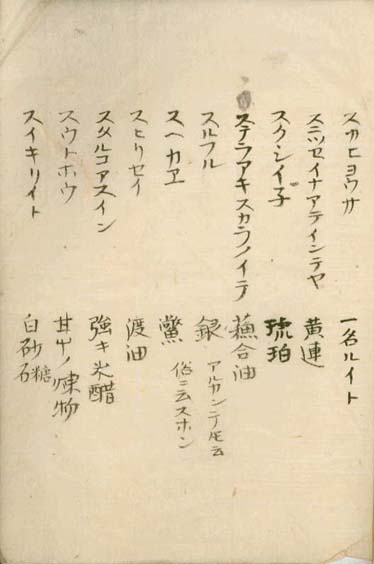 スカヒヨウサ 一名ルイト
スニツセイナアテインテヤ 黄連
スクシイ子 琥珀
ステラアキスカラノイテ 蘓合油
スルフル 銀 アルカンニテ生云
スヘカヱ 鱉 俗ニ云スホン
スヒリセイ 渡油
スタルコアスイン 強キ米醋
スウトホウ 甘草ノ煉物
スイキリイト 白砂糖 石